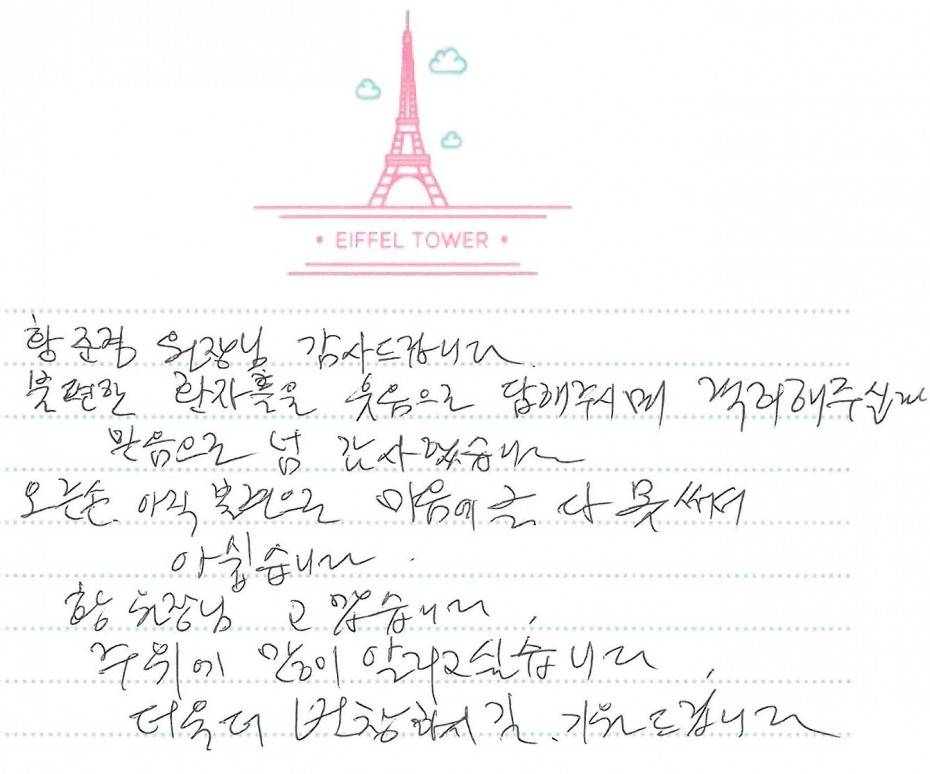 • EIFFEL TOWER •
황준경 원장님 감사드립니다
불편한 환자들을 웃음으로 답해주시며 격려해주신
믿음으로 넘 감사했습니다
오른손 아직 불편으로 마음에 글 다 못써서
아쉽습니다.
황 원장님 고맙습니다,
주위에 많이 알리고싶습니다,
더욱더 번창하시길. 기원드립니다